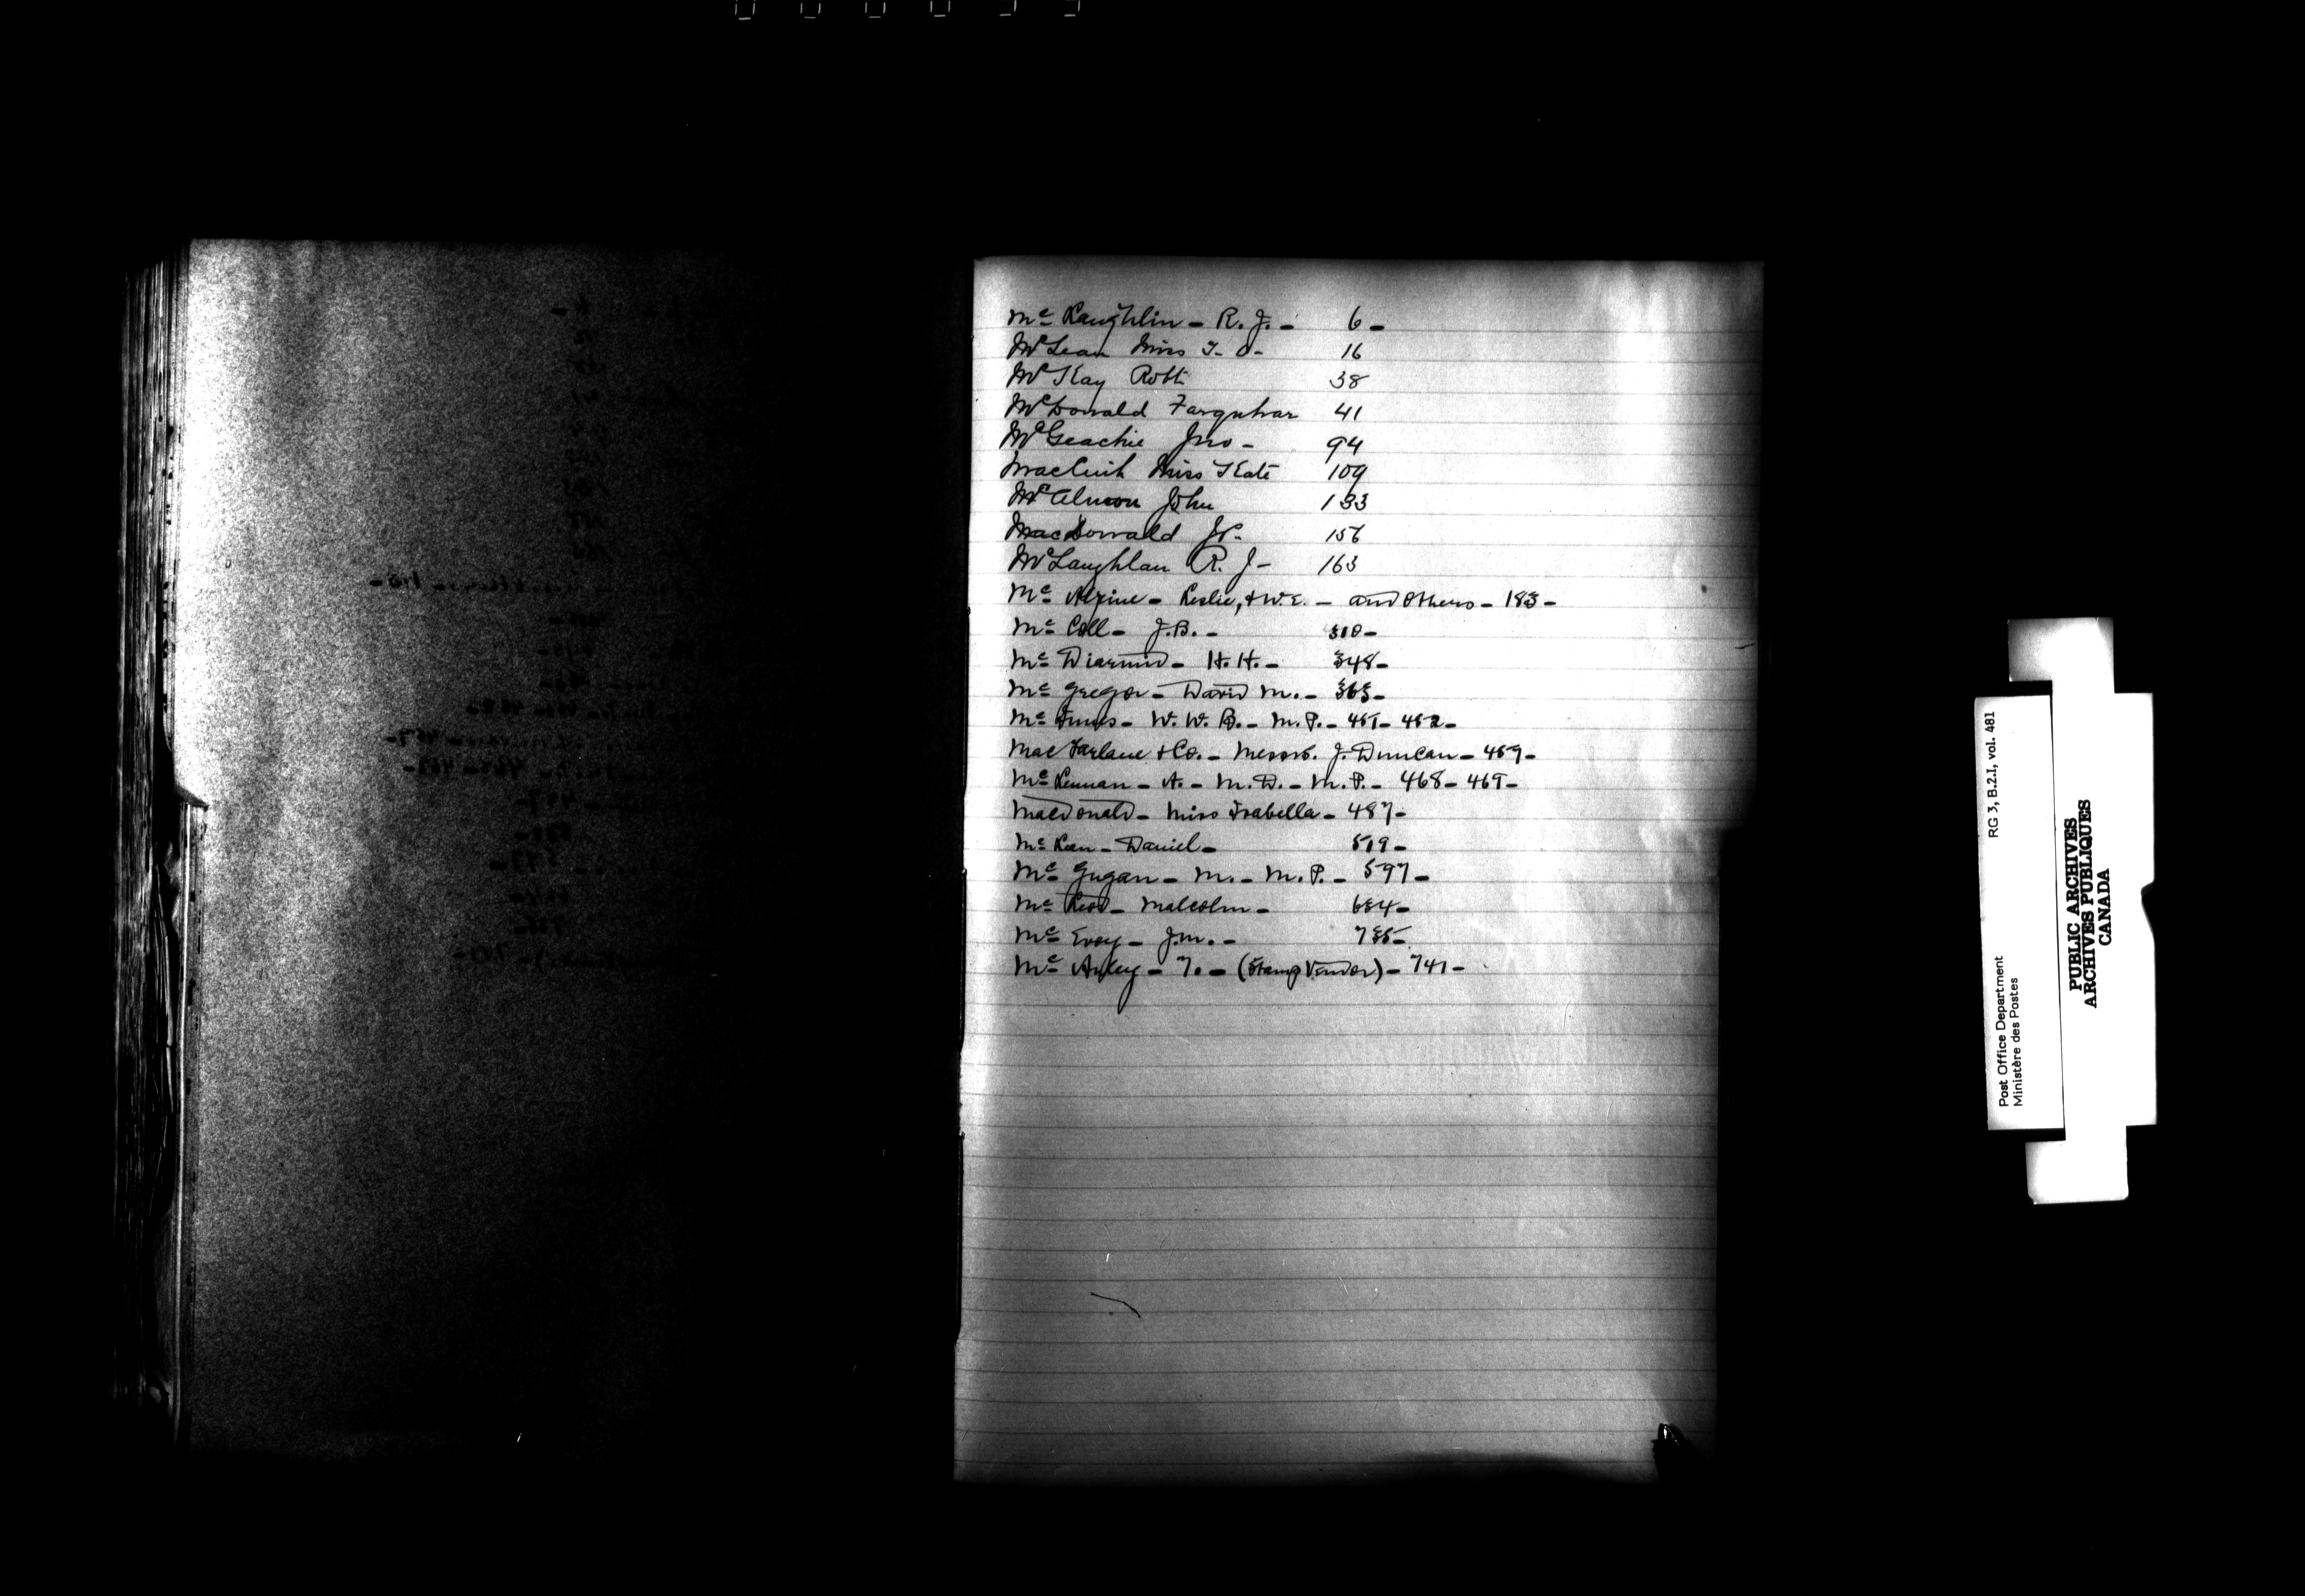 Mc Laughlin - R. J. - 6 -
McLean Miss J- O- 16
McKay Robt 38
McDonald Farquhar 41
McGeachie Jno - 94
Miss Kate 109
McAlmon John 133
MacDonald 156
McLaughlan R. J - 163
Mc Alpine - Leslie, & W.E. - and Others - 183 -
Mc Coll - J.B. - 310 -
Mc Diarmid - H. H. - 348 -
Mc Gregor - David M. - 363 -
Mc Innes - W. W. B. - M. P. - 451 - 452 -
MacFarlane & Co. - Messrs. J. Duncan - 459 -
Mc Lennan - A. - M. D. - M. P. - 468 - 469 -
Macdonald - Miss Isabella - 487 -
Mc Lean - Daniel - 519 -
Mc Gugan - M. - M. P. - 597 -
Mc Leod - Malcolm - 654 -
Mc Evoy - J.M. - 735 -
Mc - (Stamp Vendor) - 741 -
RG 3, B.2.I, vol. 481
Post Office Department
Ministère des Postes
PUBLIC ARCHIVES
ARCHIVES PUBLIQUES
CANADA